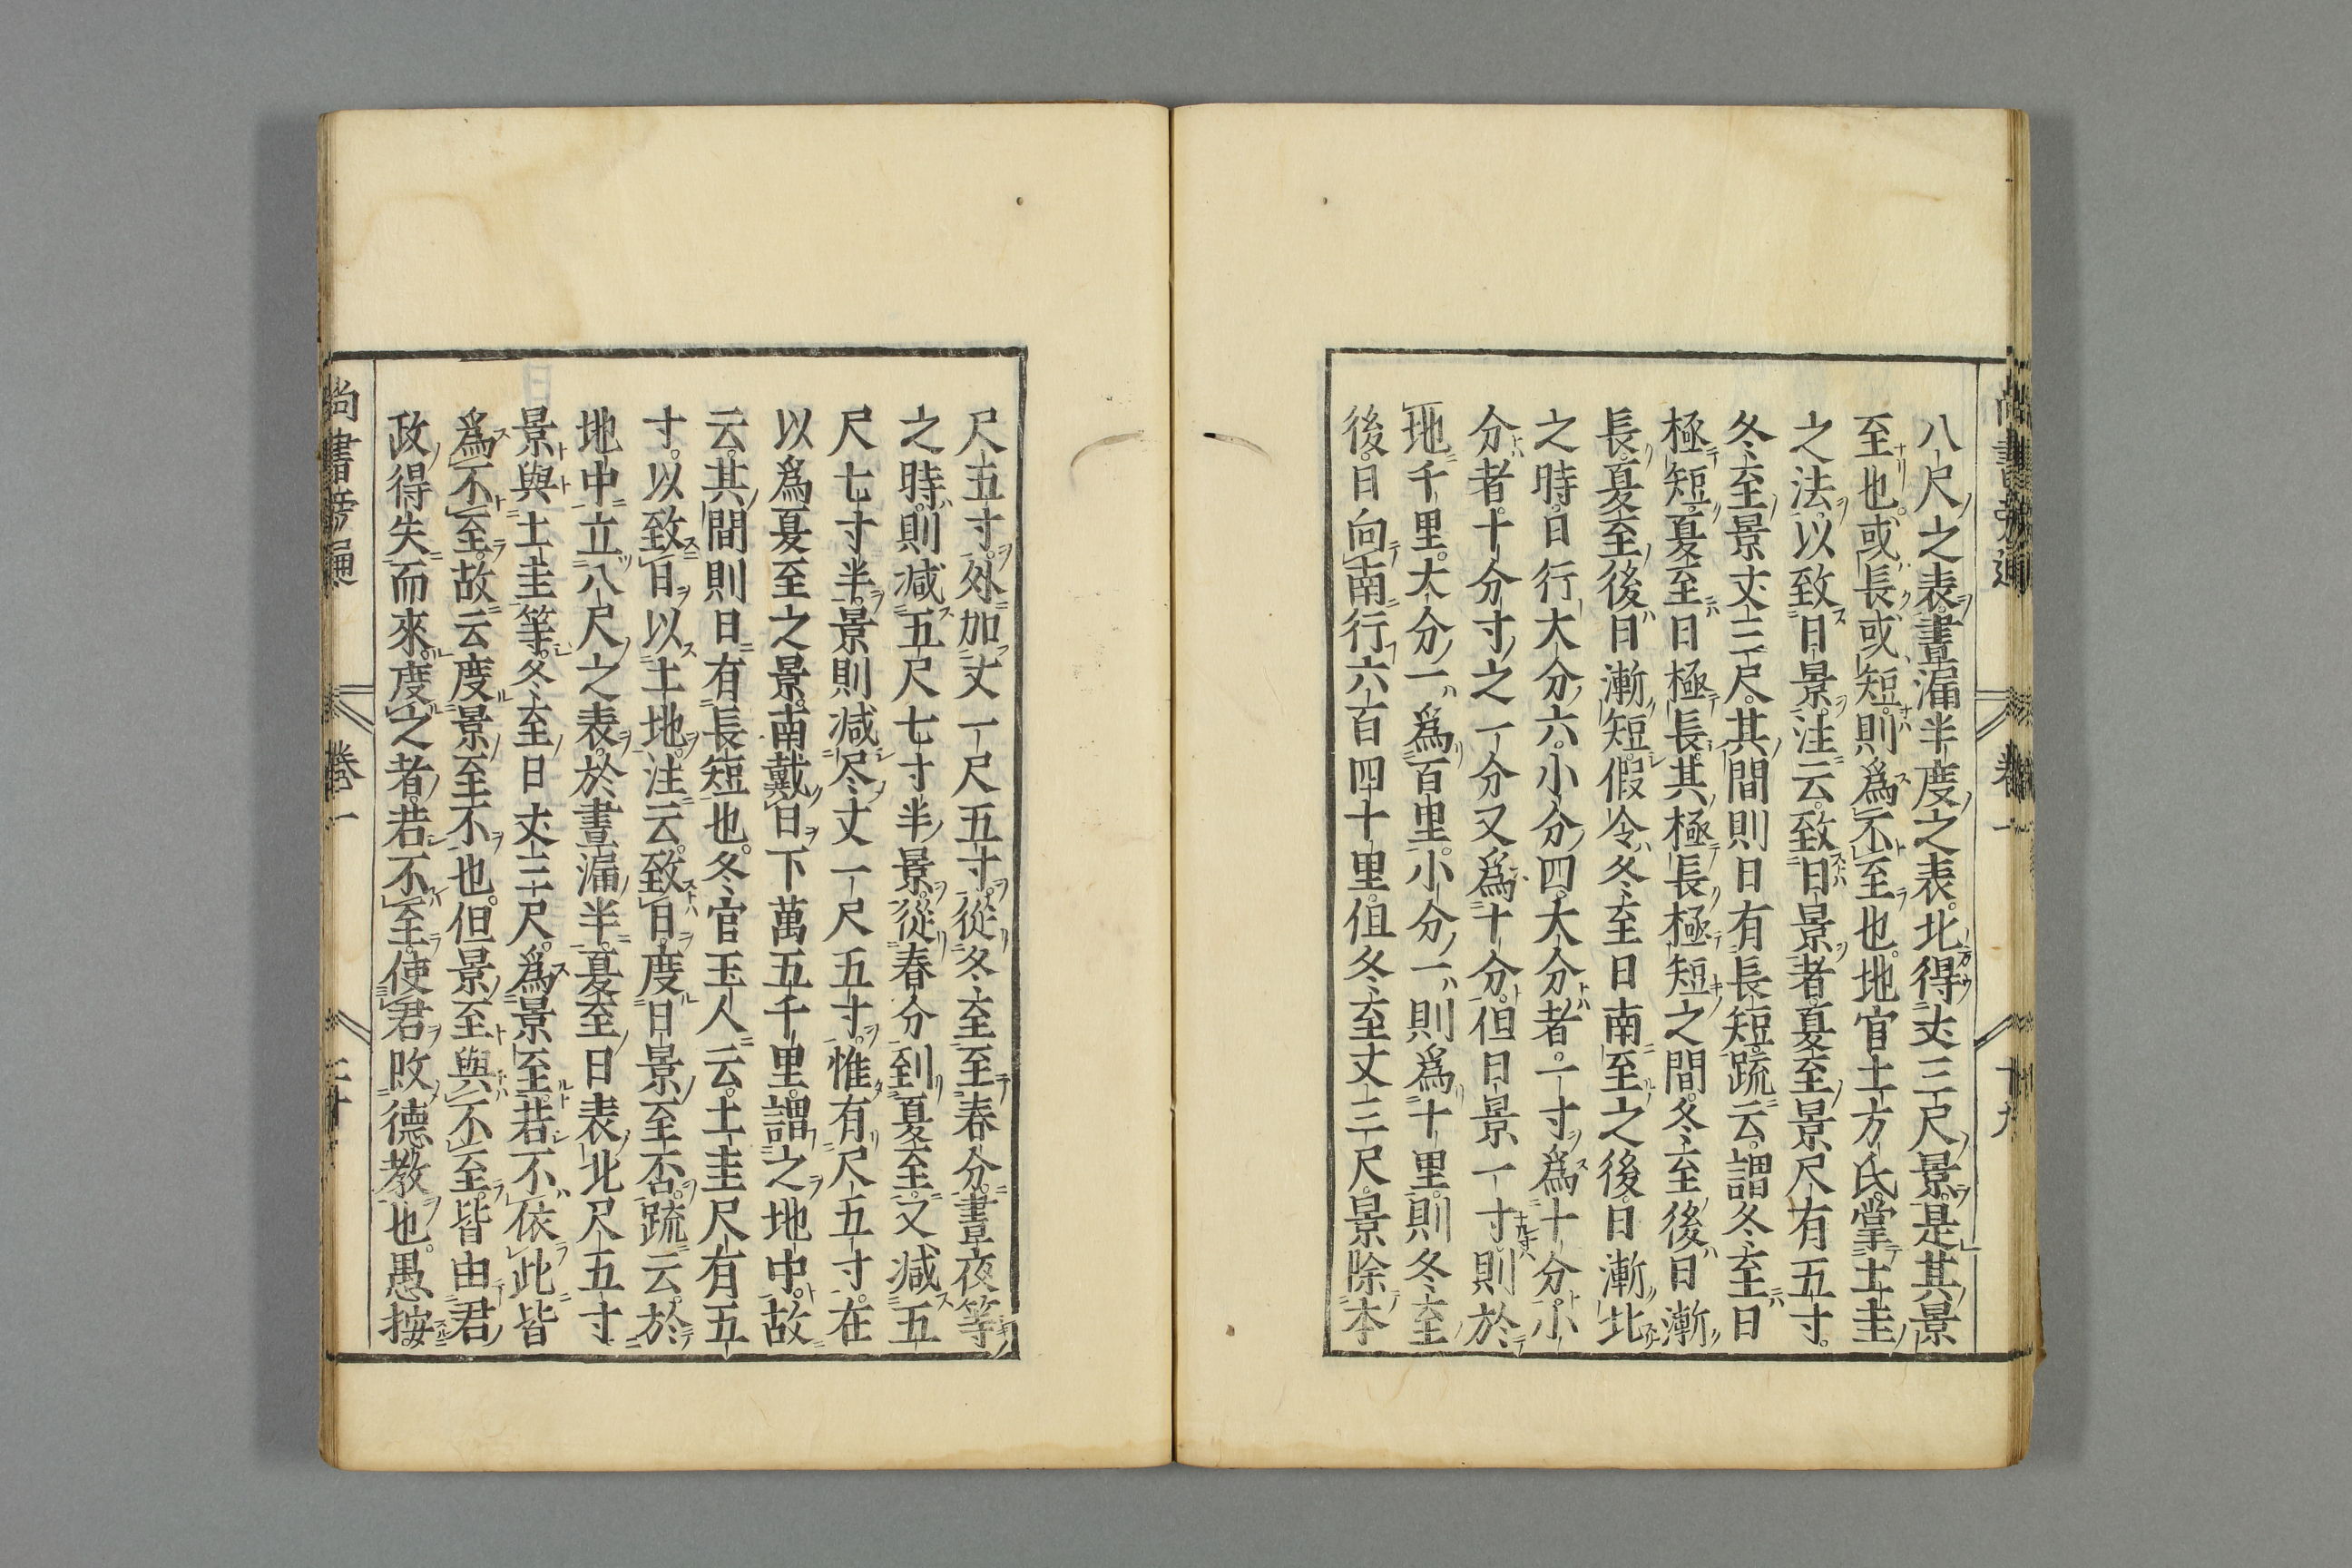 八尺之表晝漏半度之表北得丈三尺景是其景
至也或長或短則爲不至也地官土方氏掌土圭
之法以致日景注云致日景者夏至景尺有五寸
冬至景丈三尺其間則日有長短疏云謂冬至日
極短夏至日極長其極長極短之間冬至後日漸
長夏至後日漸短假令冬至日南至之後日漸北
之時日行大分六小分四大分者一寸爲十分小
分者十分寸之一分又爲十分但日景一寸則於
地千里大分一爲百里小分一則爲十里則冬至
後日向南行六百四十里但冬至丈三尺景除本
尺五寸外加丈一尺五寸從冬至至春分晝夜等
之時則減五尺七寸半景從春分到夏至又減五
尺七寸半景則減尽丈一尺五寸惟有尺五寸在
以爲夏至之景南戴日下萬五千里謂之地中故
云其間則日有長短也冬官玉人云土圭尺有五
寸以致日以土地注云致日度日景至否疏云於
地中立八尺之表於晝漏半夏至日表北尺五寸
景與土圭等冬至日丈三尺爲景至若不依此皆
爲不至故云度景至不也但景至與不至皆由君
政得失而來度之者若不至使君改德教也愚按
尚書旁通 卷一